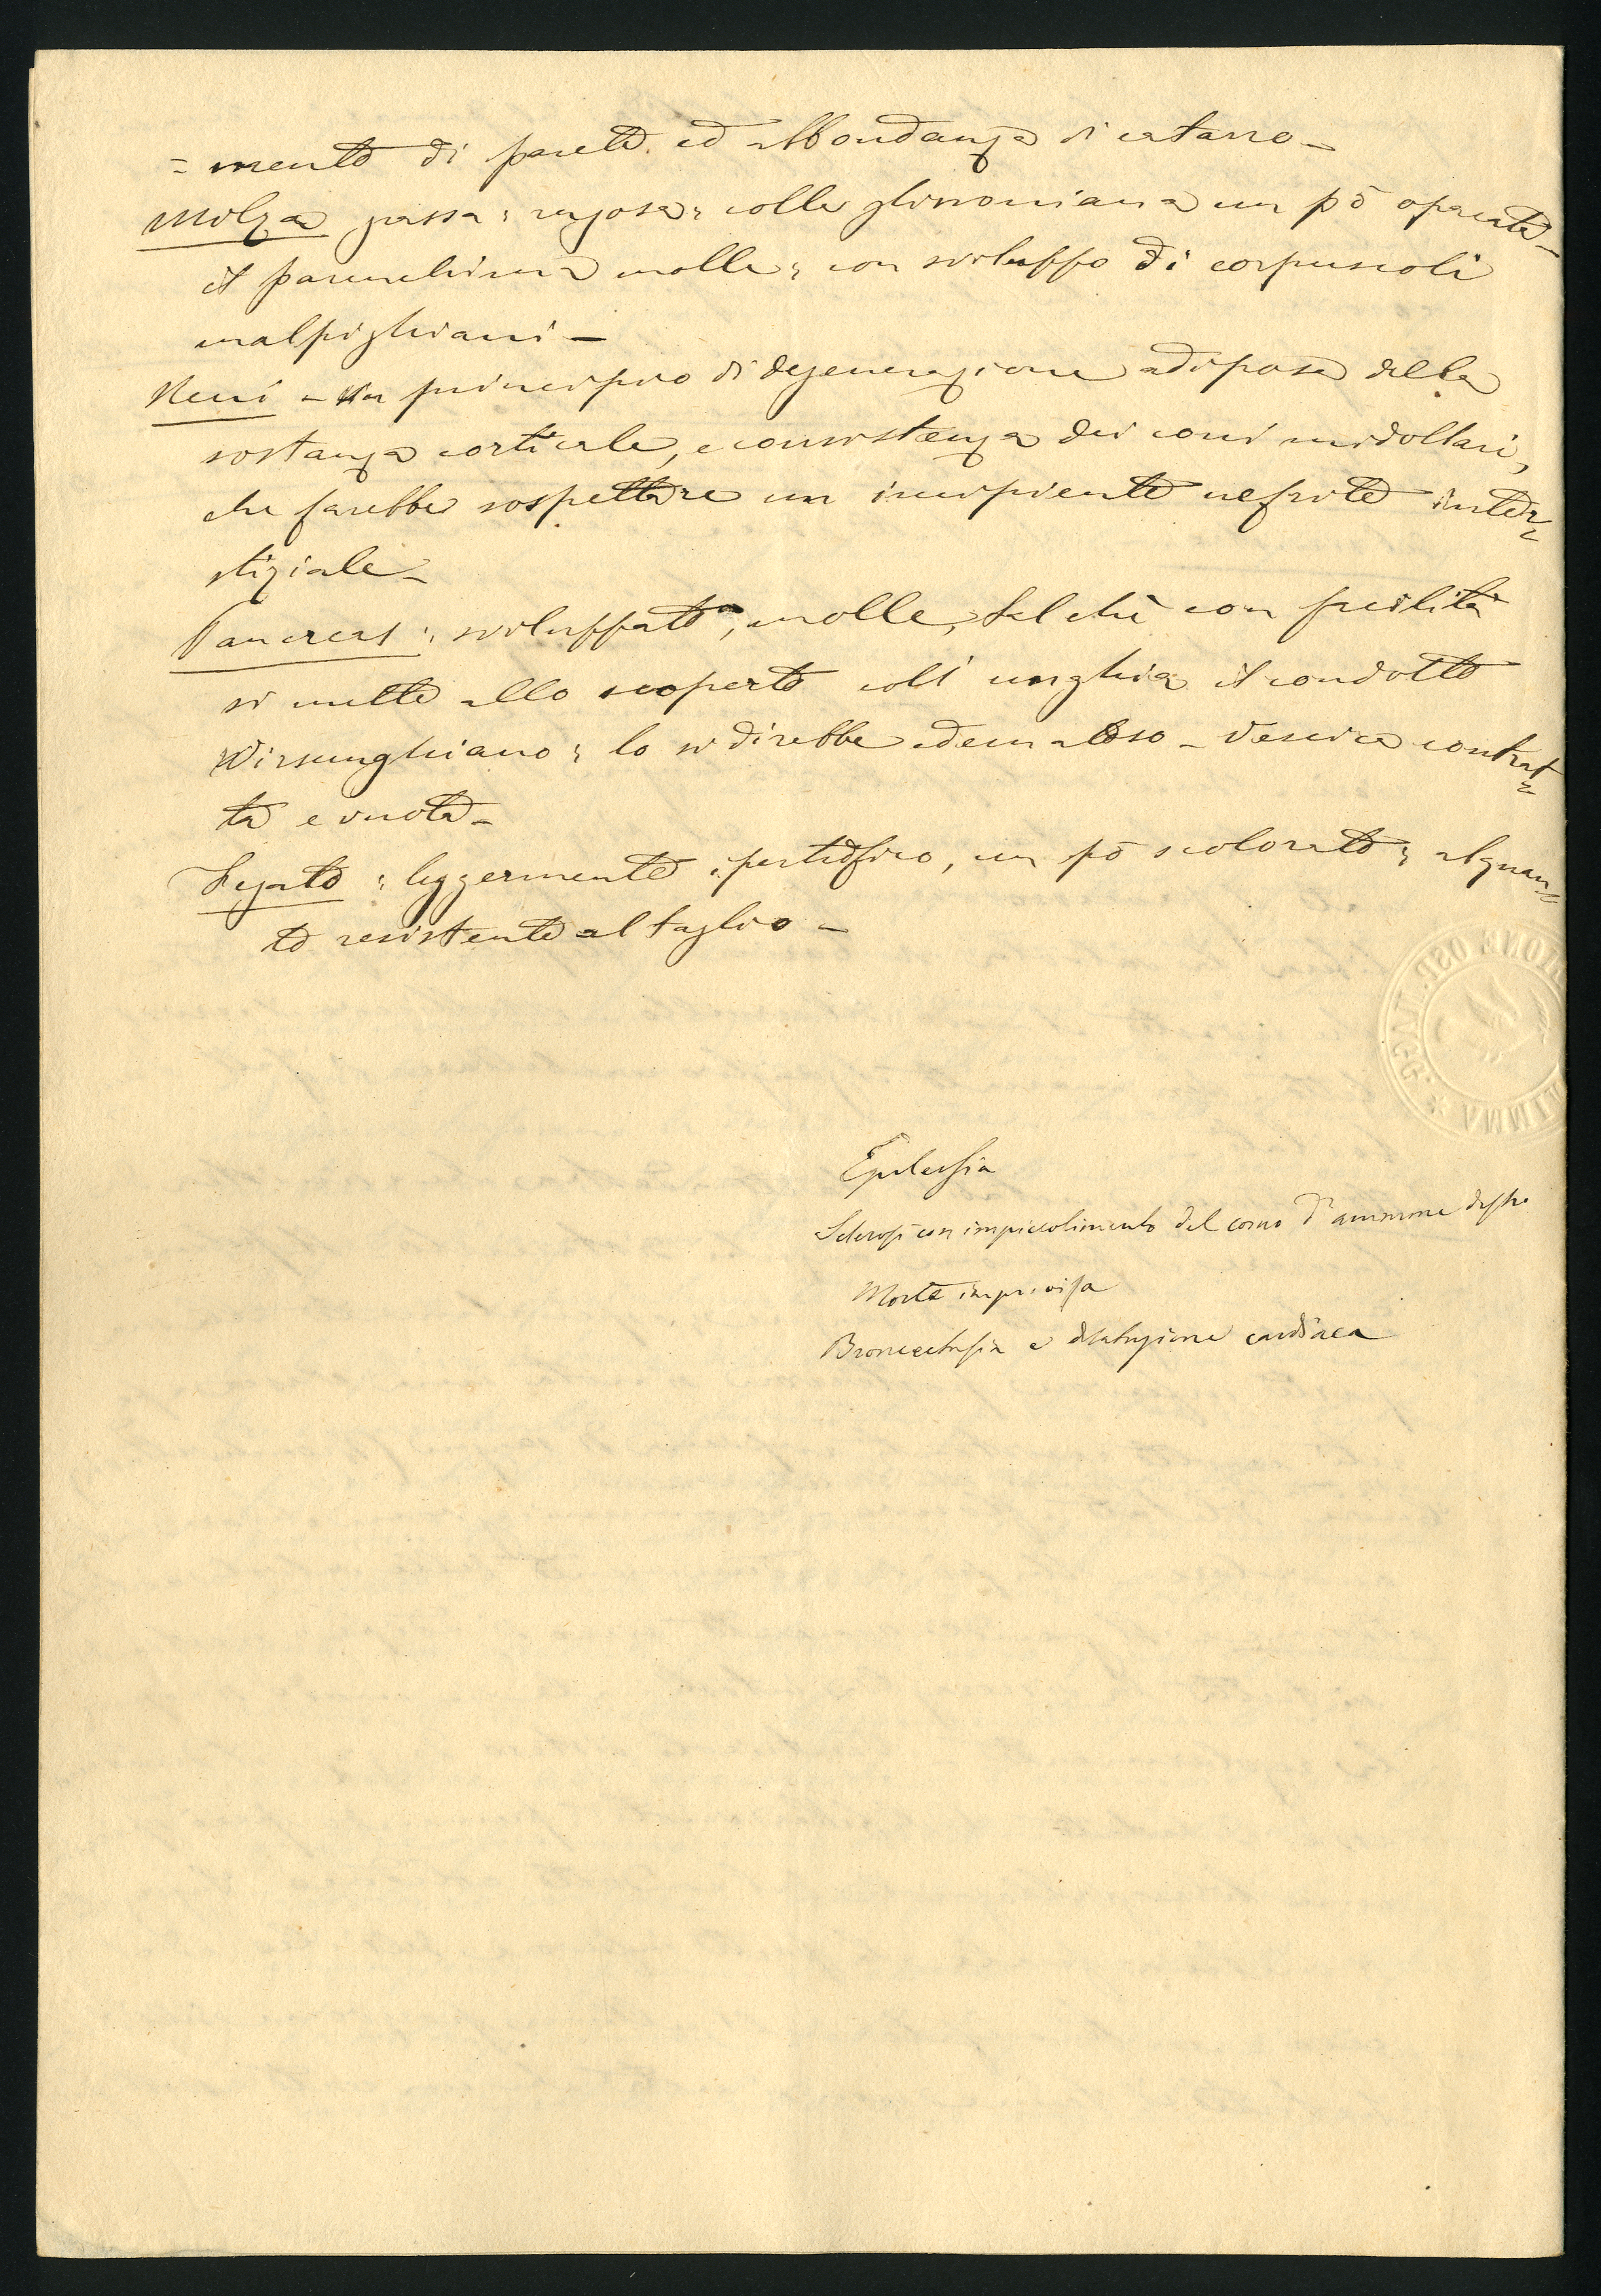 = mento di parete ed abbondanza di catarro -
Milza grossa; rugosa; colla glissoniana un pò opacata -
il parenchima molle; con sviluppo di corpuscoli
malpighiani -
Reni - Un principio di degenerazione adiposa della
sostanza corticale, e consistenza dei coni midollari,
che farebbe sospettare un incipiente nefrite inter=
stiziale -
Pancreas; sviluppato, molle, tal chè con facilità
si mette allo scoperto coll' unghia il condotto
Wirsunghiano; lo si direbbe edematoso - Vescica contrat=
ta e vuota -
Fegato; leggermente ipertrofico, un pò scolorato; alquan=
to resistente al taglio -
Epilessia
Sclerosi con impiccolimento del corno d'ammone destro
Morte improvisa
Bronceectasia e dilatazione cardiaca